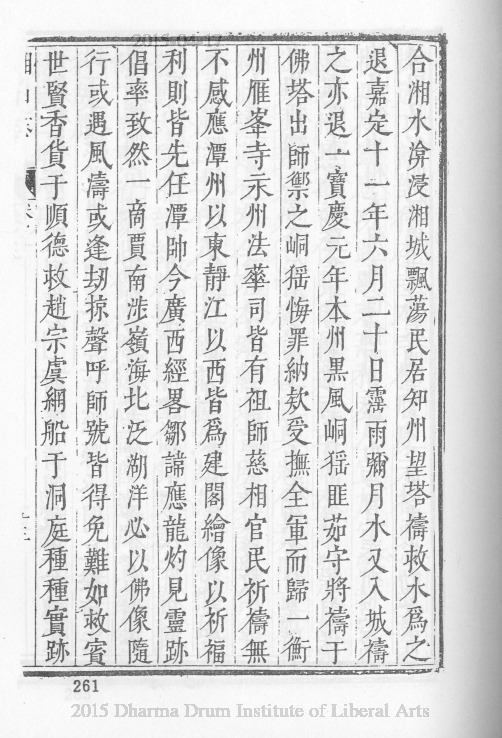 合湘水渰浸湘城飄蕩民居知州望塔禱救水爲之
退嘉定十一年六月二十日霪雨彌月水又入城禱
之亦退一寶慶元年本州黑風峒猺匪茹守將禱于
佛塔出師禦之峒猺悔罪納欵受撫全軍而歸一衡
州雁峯寺示州法華司皆有祖師慈相官民祈禱無
不感應潭州以東靜江以西皆爲建閣繪像以祈福
利則皆先任潭帥今廣西經畧鄒諱應龍灼見靈跡
倡率致然一商賈南涉嶺海北泛湖洋必以佛像隨
行或遇風濤或逢刼掠聲呼師號皆得免難如救賓
世賢香貨于順德救趙宗虞綱船于洞庭種種實跡
261
2015-04-17
2015 Dharma Drum Institute of Liberal Arts